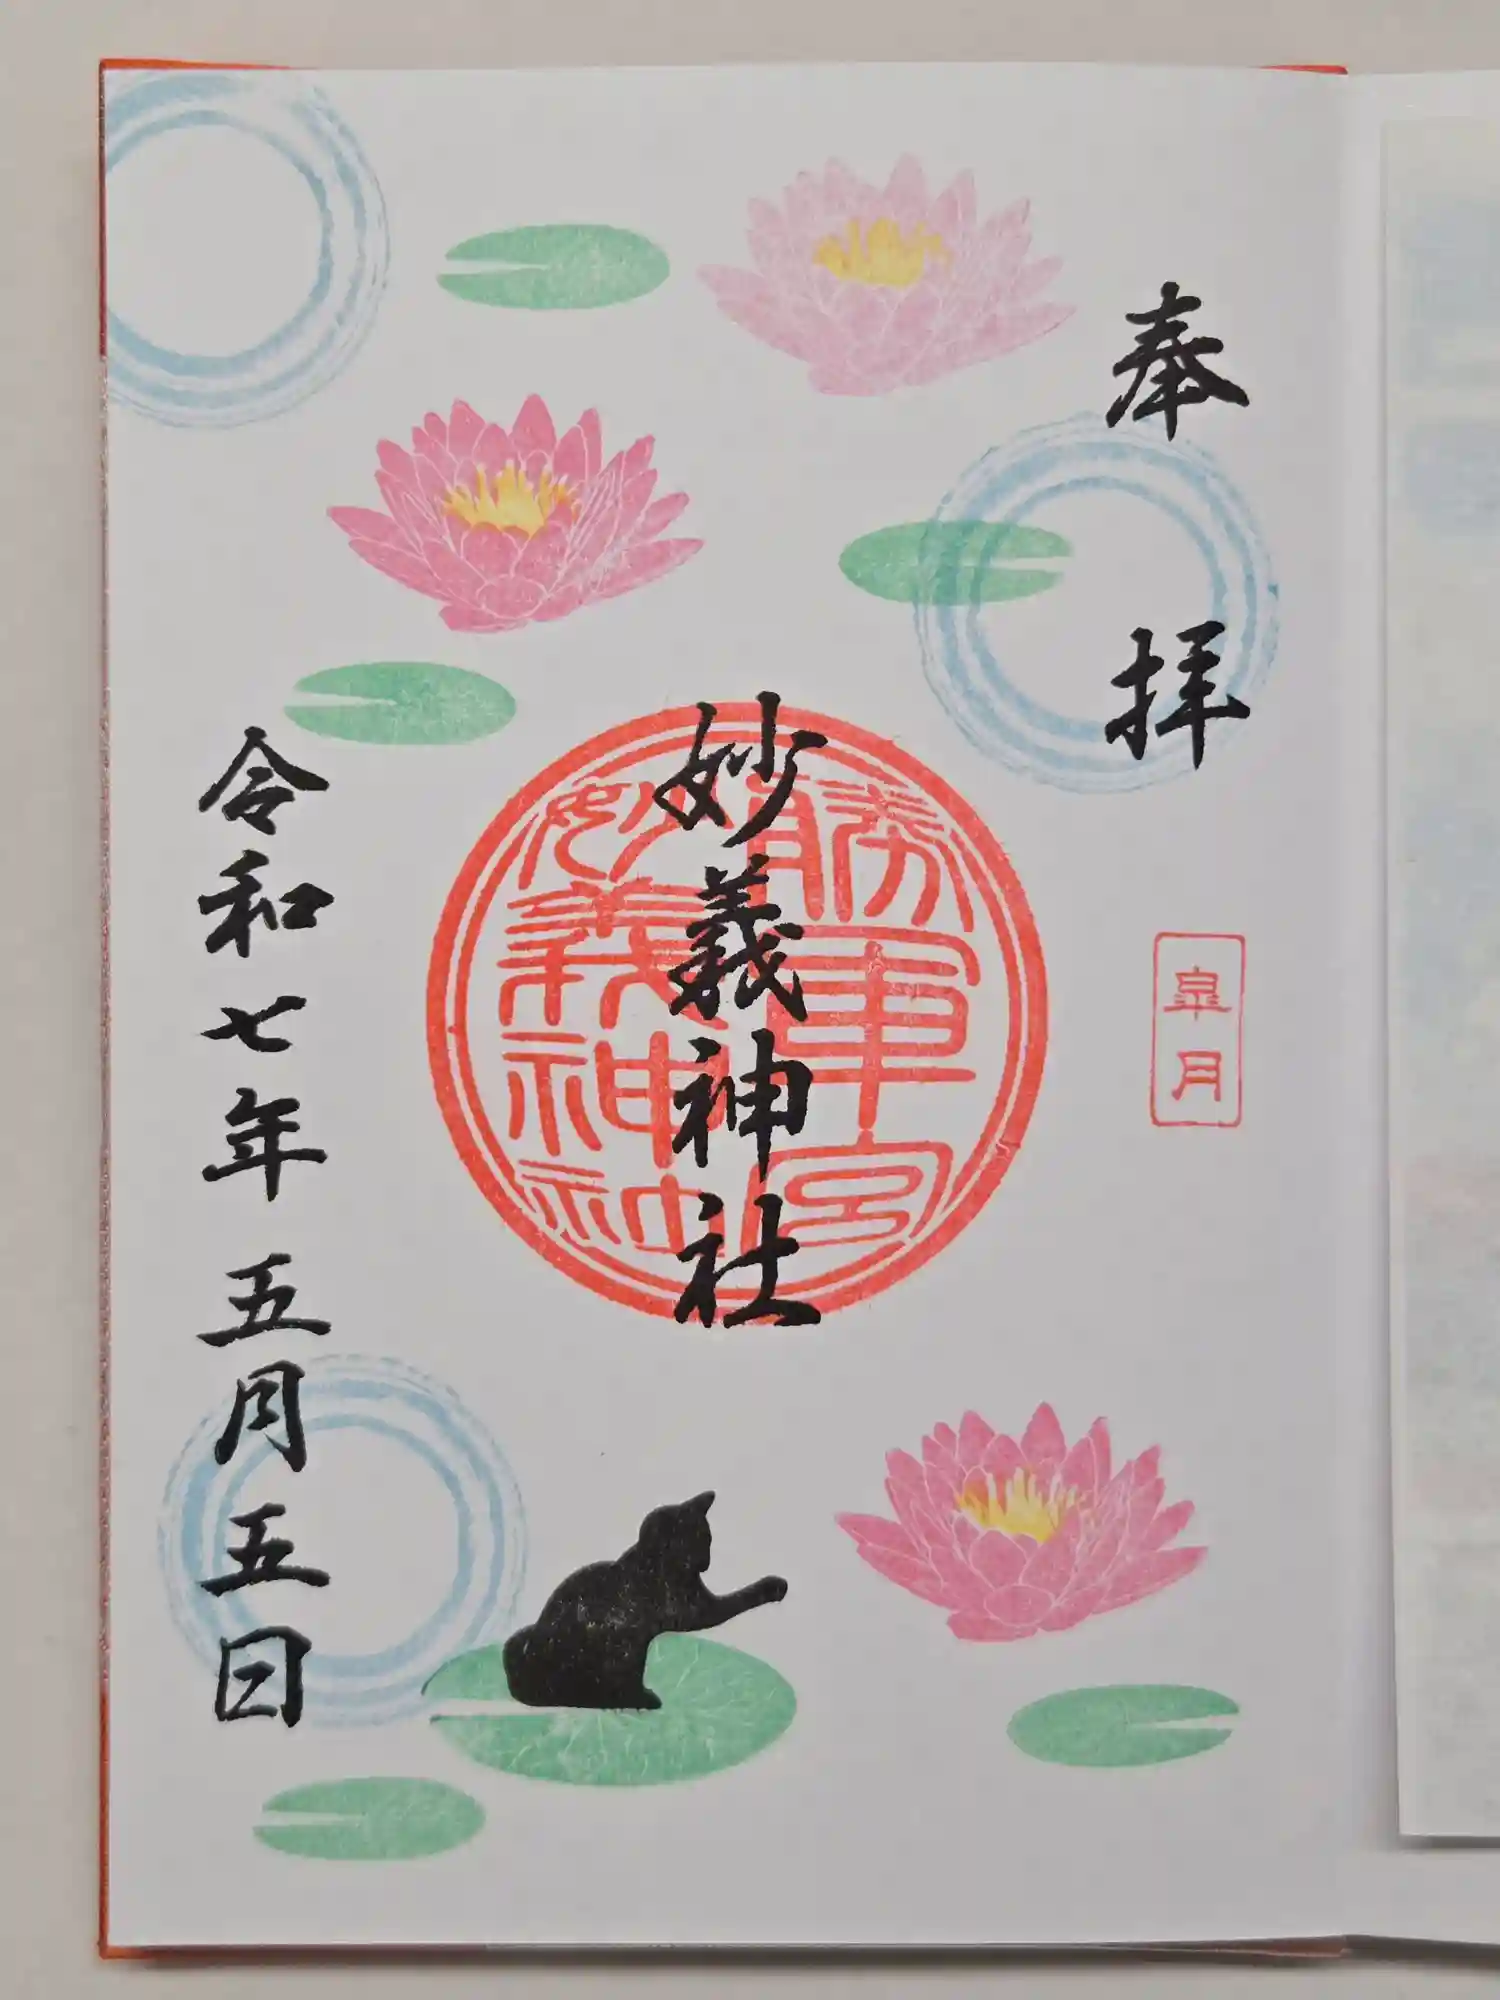 奉拝
皐月
勝軍宮
妙義神社
妙義神社
令和七年五月五日